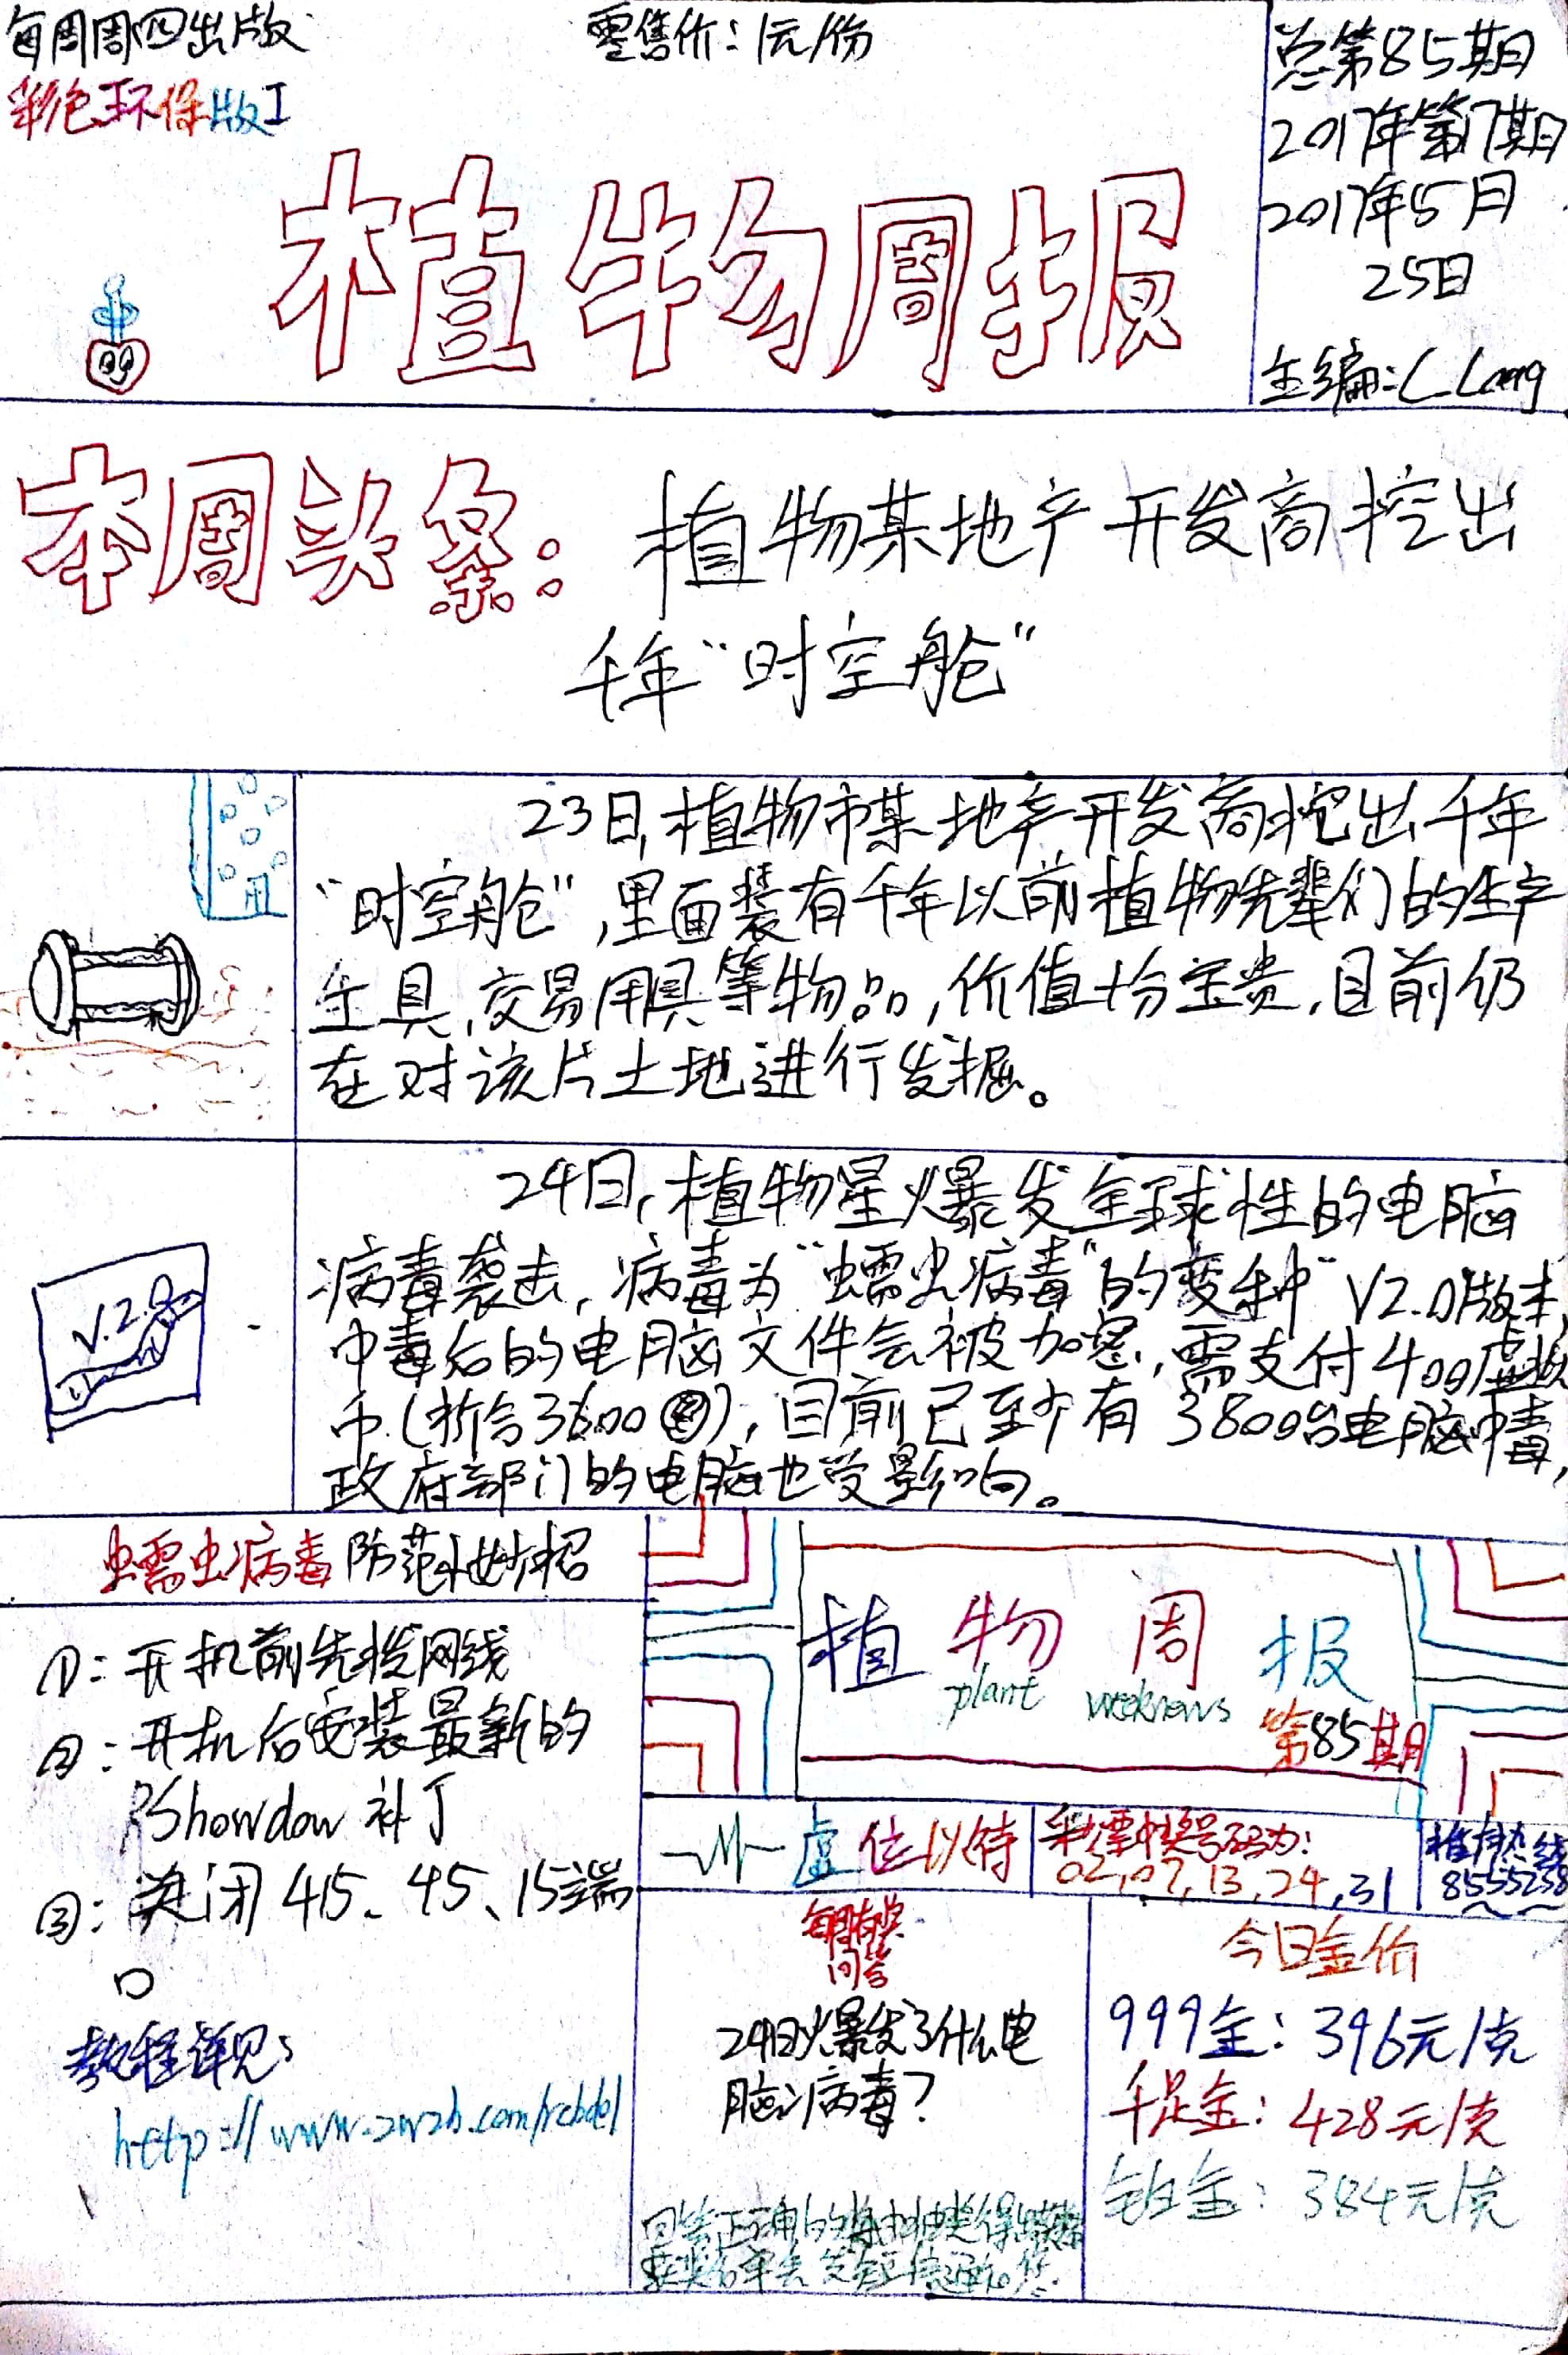 每周周四出版
零售价：1元/份
彩色环保版I
总第85期
2017年第17期
2017年5月
25日
主编：C_Lang
植物周报
本周头条：植物某地产开发商挖出
千年“时空舱”
23日,植物市某地产开发商挖出千年
“时空舱”,里面装有千年以前植物先辈们的生产
工具,交易用具等物品,价值十分宝贵,目前仍
在对该片土地进行发掘。
24日,植物星爆发全球性的电脑
病毒袭击,病毒为“蠕虫病毒”的变种“V2.0”版本,
中毒后的电脑文件会被加密,需支付400虚拟
币(折合3600),目前已至少有3800台电脑中毒,
政府部门的电脑也受影响。
V.2.0
蠕虫病毒防范小妙招
①：开机前先拔网线
②：开机后安装最新的
Showdow补丁
③：关闭415、45、15端
口
教程详见：
植物周报
plant weeknews
第85期
虚位以待
彩票中奖号码为：
02,07,13,24,31
热线
8555258
每周有奖
问答
24日爆发了什么电
脑病毒？
今日金价
999金：396元/克
千足金：428元/克
铂金：384元/克